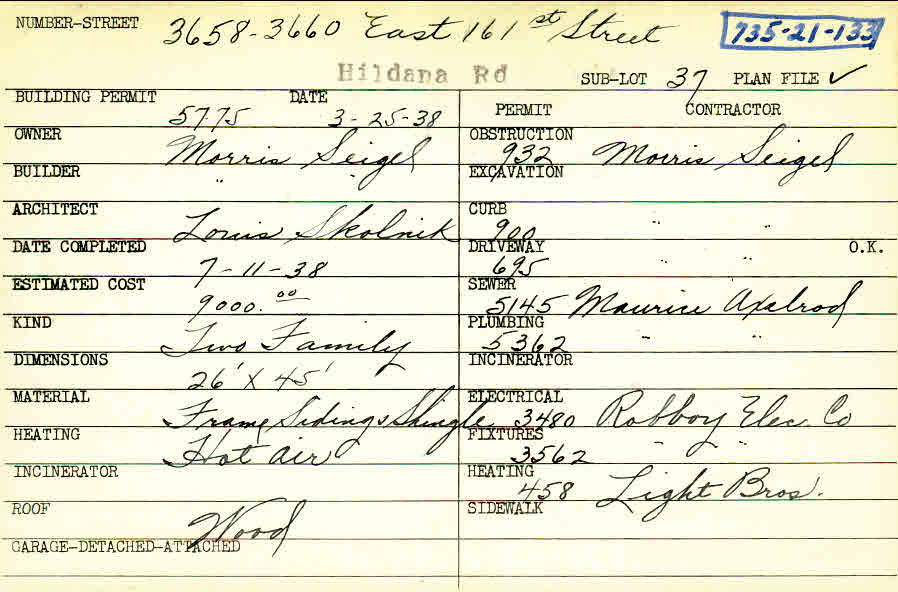 NUMBER-STREET 3658-3660 East 161st Street 735-21-133
Hildana Rd SUB-LOT 37 PLAN FILE ✓
BUILDING PERMIT 5775 DATE 3-25-38
OWNER Morris Seigel
BUILDER " "
ARCHITECT Louis Skolnik
DATE COMPLETED 7-11-38
ESTIMATED COST 9000.00
KIND Two Family
DIMENSIONS 26' X 45'
MATERIAL Frame Siding & Shingle
HEATING Hot air
INCINERATOR
ROOF Wood
GARAGE-DETACHED-ATTACHED
PERMIT CONTRACTOR
OBSTRUCTION 932 Morris Seigel
EXCAVATION
CURB 900 " "
DRIVEWAY 695 " " O.K.
SEWER 5145 Maurice Axelrod
PLUMBING 5362 " "
INCINERATOR
ELECTRICAL 3480 Robboy Elec. Co
FIXTURES 3562 " "
HEATING 458 Light Bros.
SIDEWALK